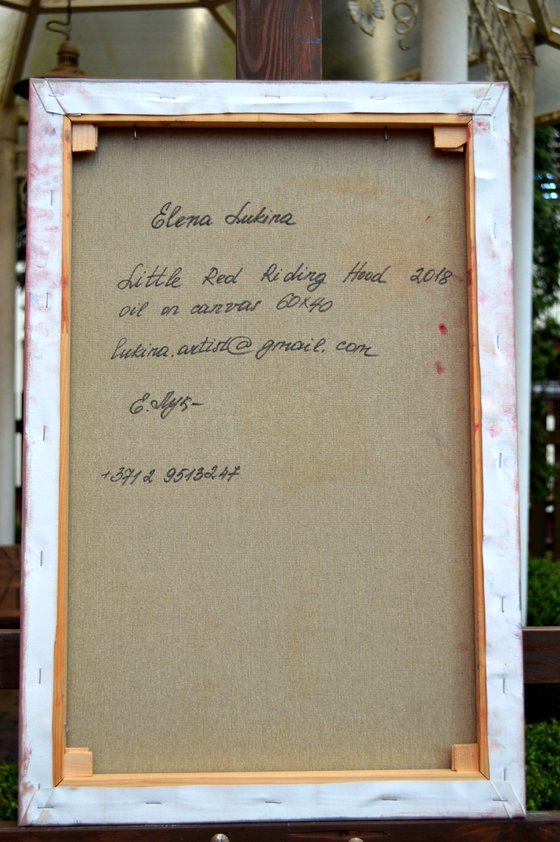 Elena Lukina
Little Red Riding Hood 2018
oil on canvas 60x40
lukina.artist@gmail.com
+371 2 9513247